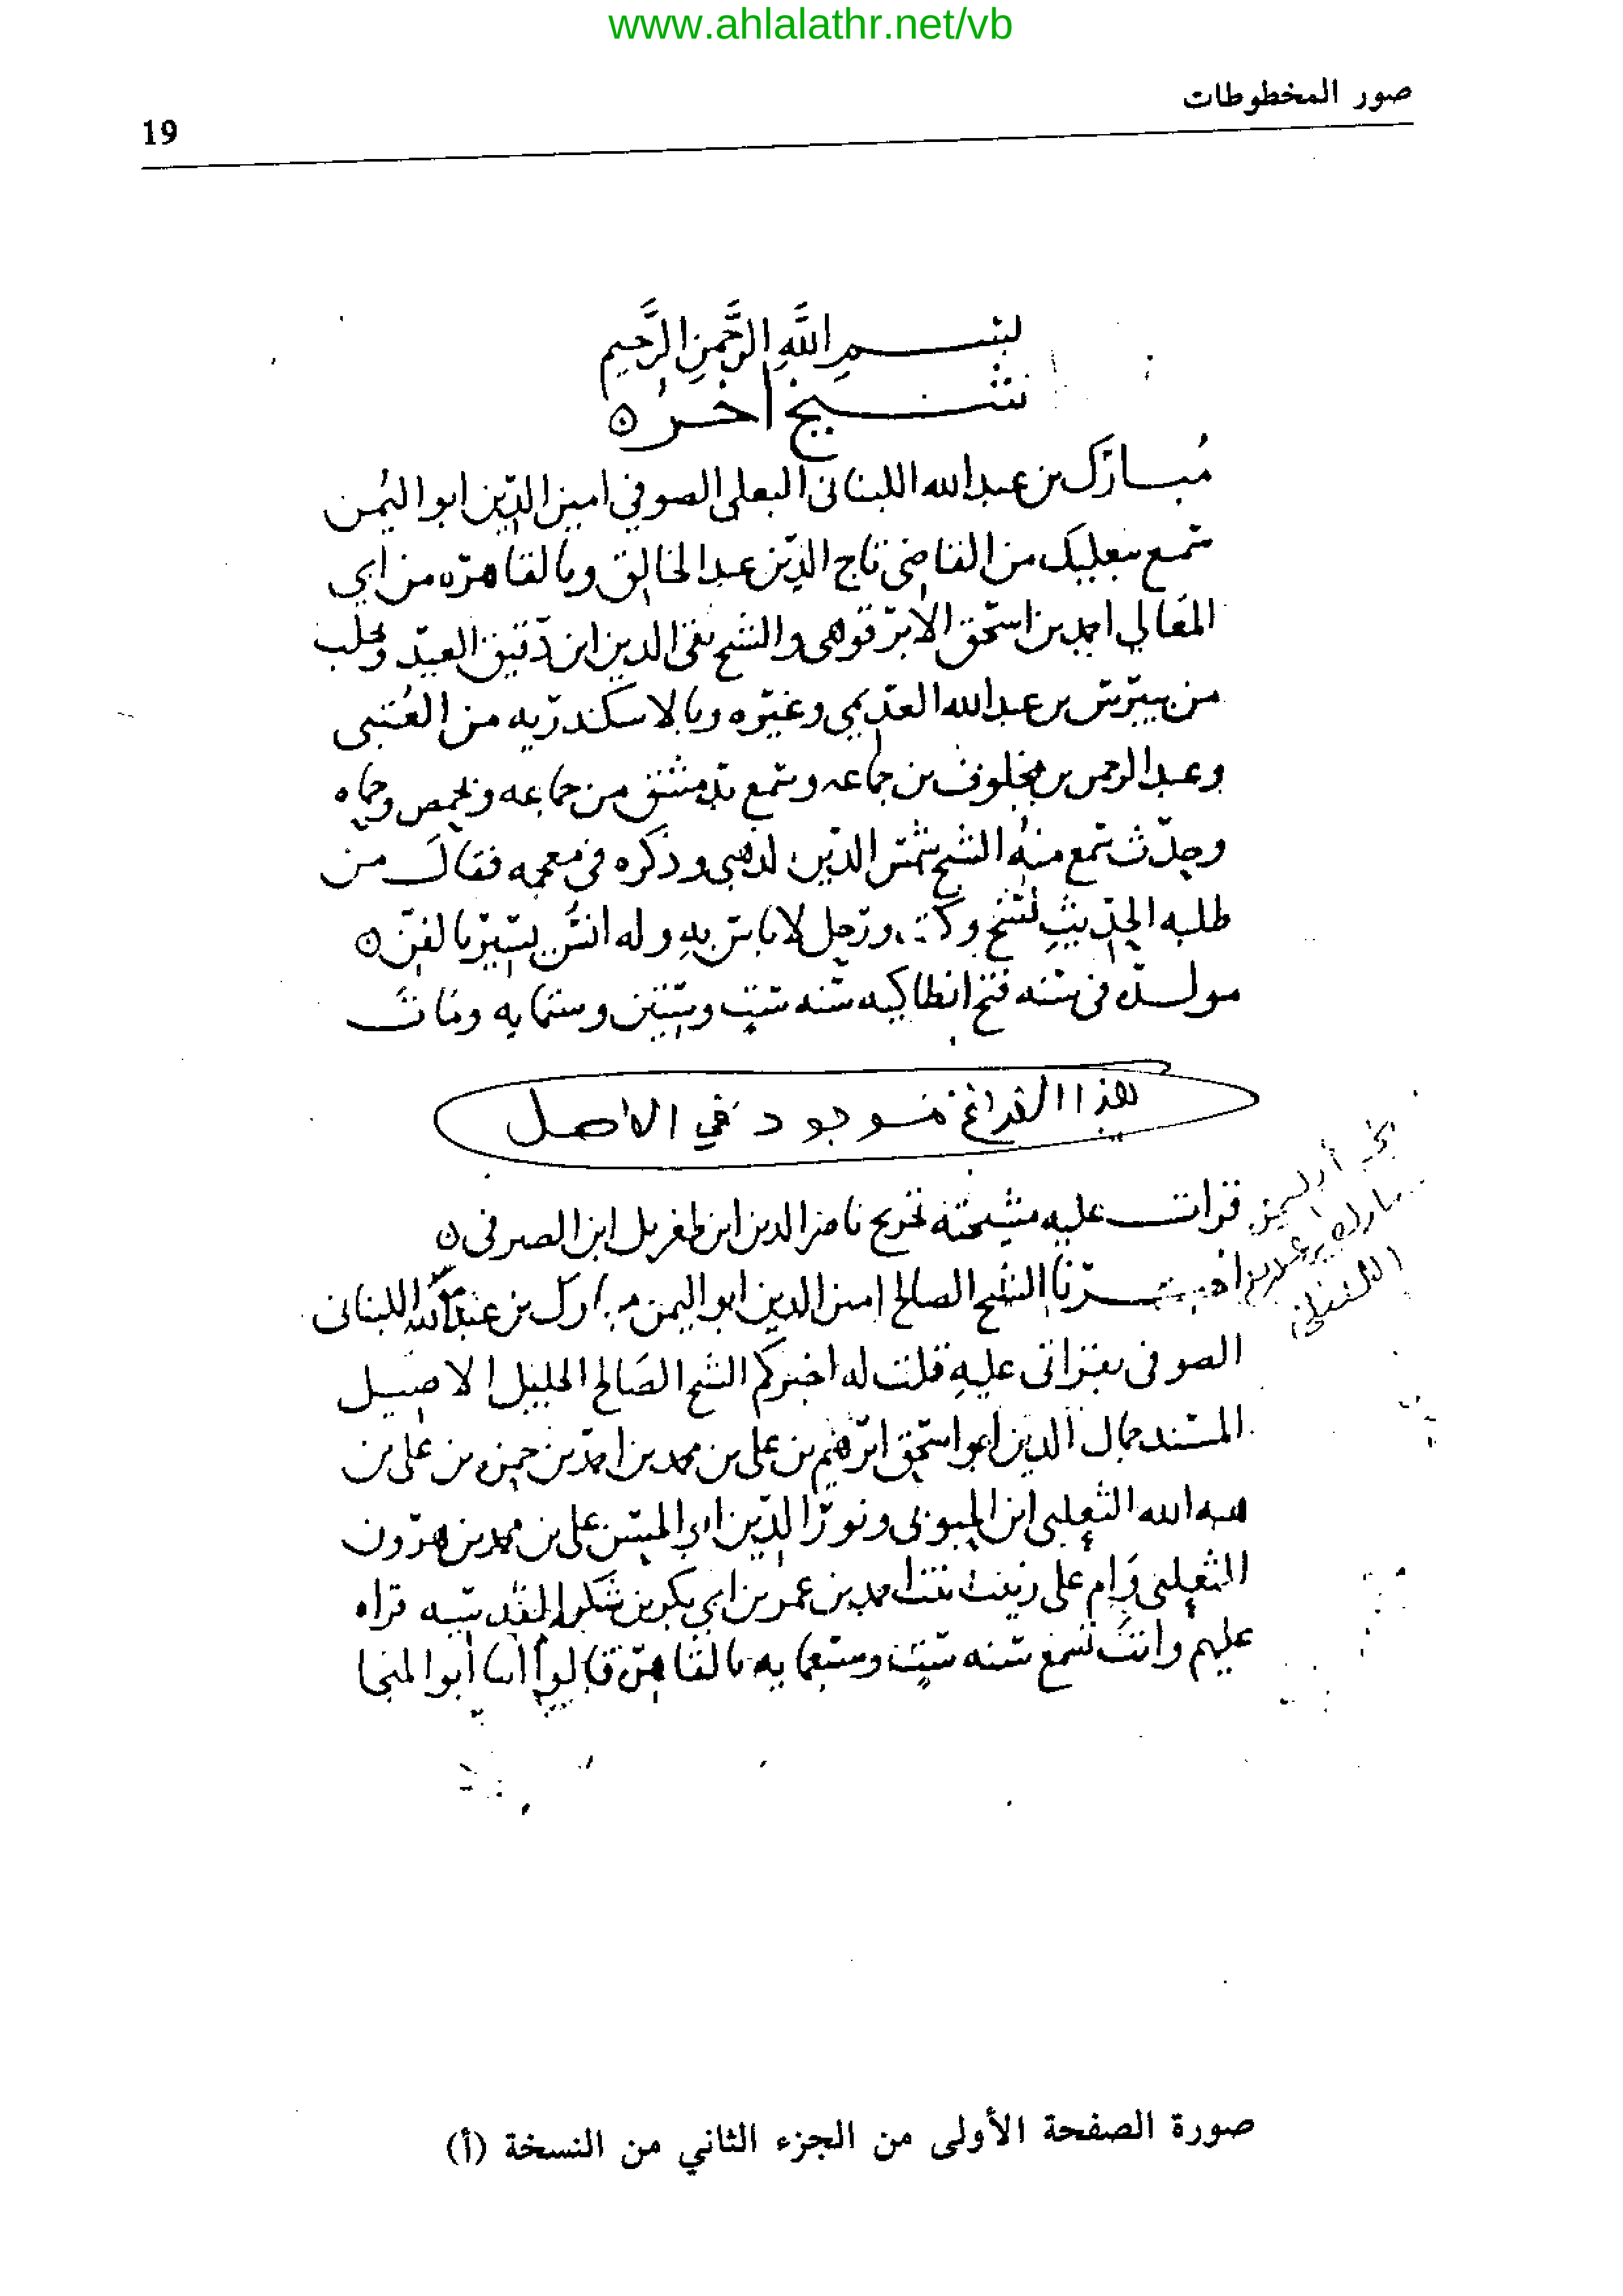 www.ahlalathr.net/vb
صور المخطوطات
19
بسم اللَّهِ الرَّحمنِ الرَّحيم
شيخ اخر
مُبارَك بن عبدالله اللبنانى البعلى الصوفي امين الدّين ابو اليُمن
سمع ببعلبك من القاضى تاج الدّين عبد الخالق وبالقاهره من ابي
المعَالي احمد بن اسحق الأبرقوهى والشيخ تقى الدين ابن دقيق العيد وبحلب
من بيبرس بن عبدالله العديمي وغيره وبالاسكندريه من العُتبى
وعبد الرحمن بن مخلوف بن جماعه وسمع بدمشق من جماعه وبحمص وحماه
وحدّث سمع منهُ الشيخ شمس الدّين الذهبى وذكره في معجمه فقالَ من
طلبه الحديثِ نسخ وكتب ورحل لا باس بهِ وله انسُ يسير بالفن
مولده فى سنه فتح انطاكيه سنه ست وستين وستمايه ومَات
هذا الفراغ موجود في الأصل
قرات عليه مشيخته تخريج ناصر الدين ابن طغريل ابن الصيرفى
اخبرنا الشيخ الصالح امين الدين ابو اليمن مبارك بن عبدالله اللبنانى
الصوفى بقراتى عليهِ قلت له اخبركم الشيخ الصَالح الجليل الاصيل
المسند جمال الدين ابو اسحق ابرهيم بن على بن محمد بن احمد بن حمزه بن على بن
هبه الله الثعلبى ابن الحبوبى ونور الدّين ابو الحسن على بن محمد بن هرون
الثعلبى وَام على زينب بنت احمد بن عمر بن ابي بكر بن شكر المقدسيه قراه
عليهم وانتَ تسمع سنه ست وسبعمايه بالقاهره قالوا أبنا أبو المنجا
صورة الصفحة الأولى من الجزء الثاني من النسخة (أ)